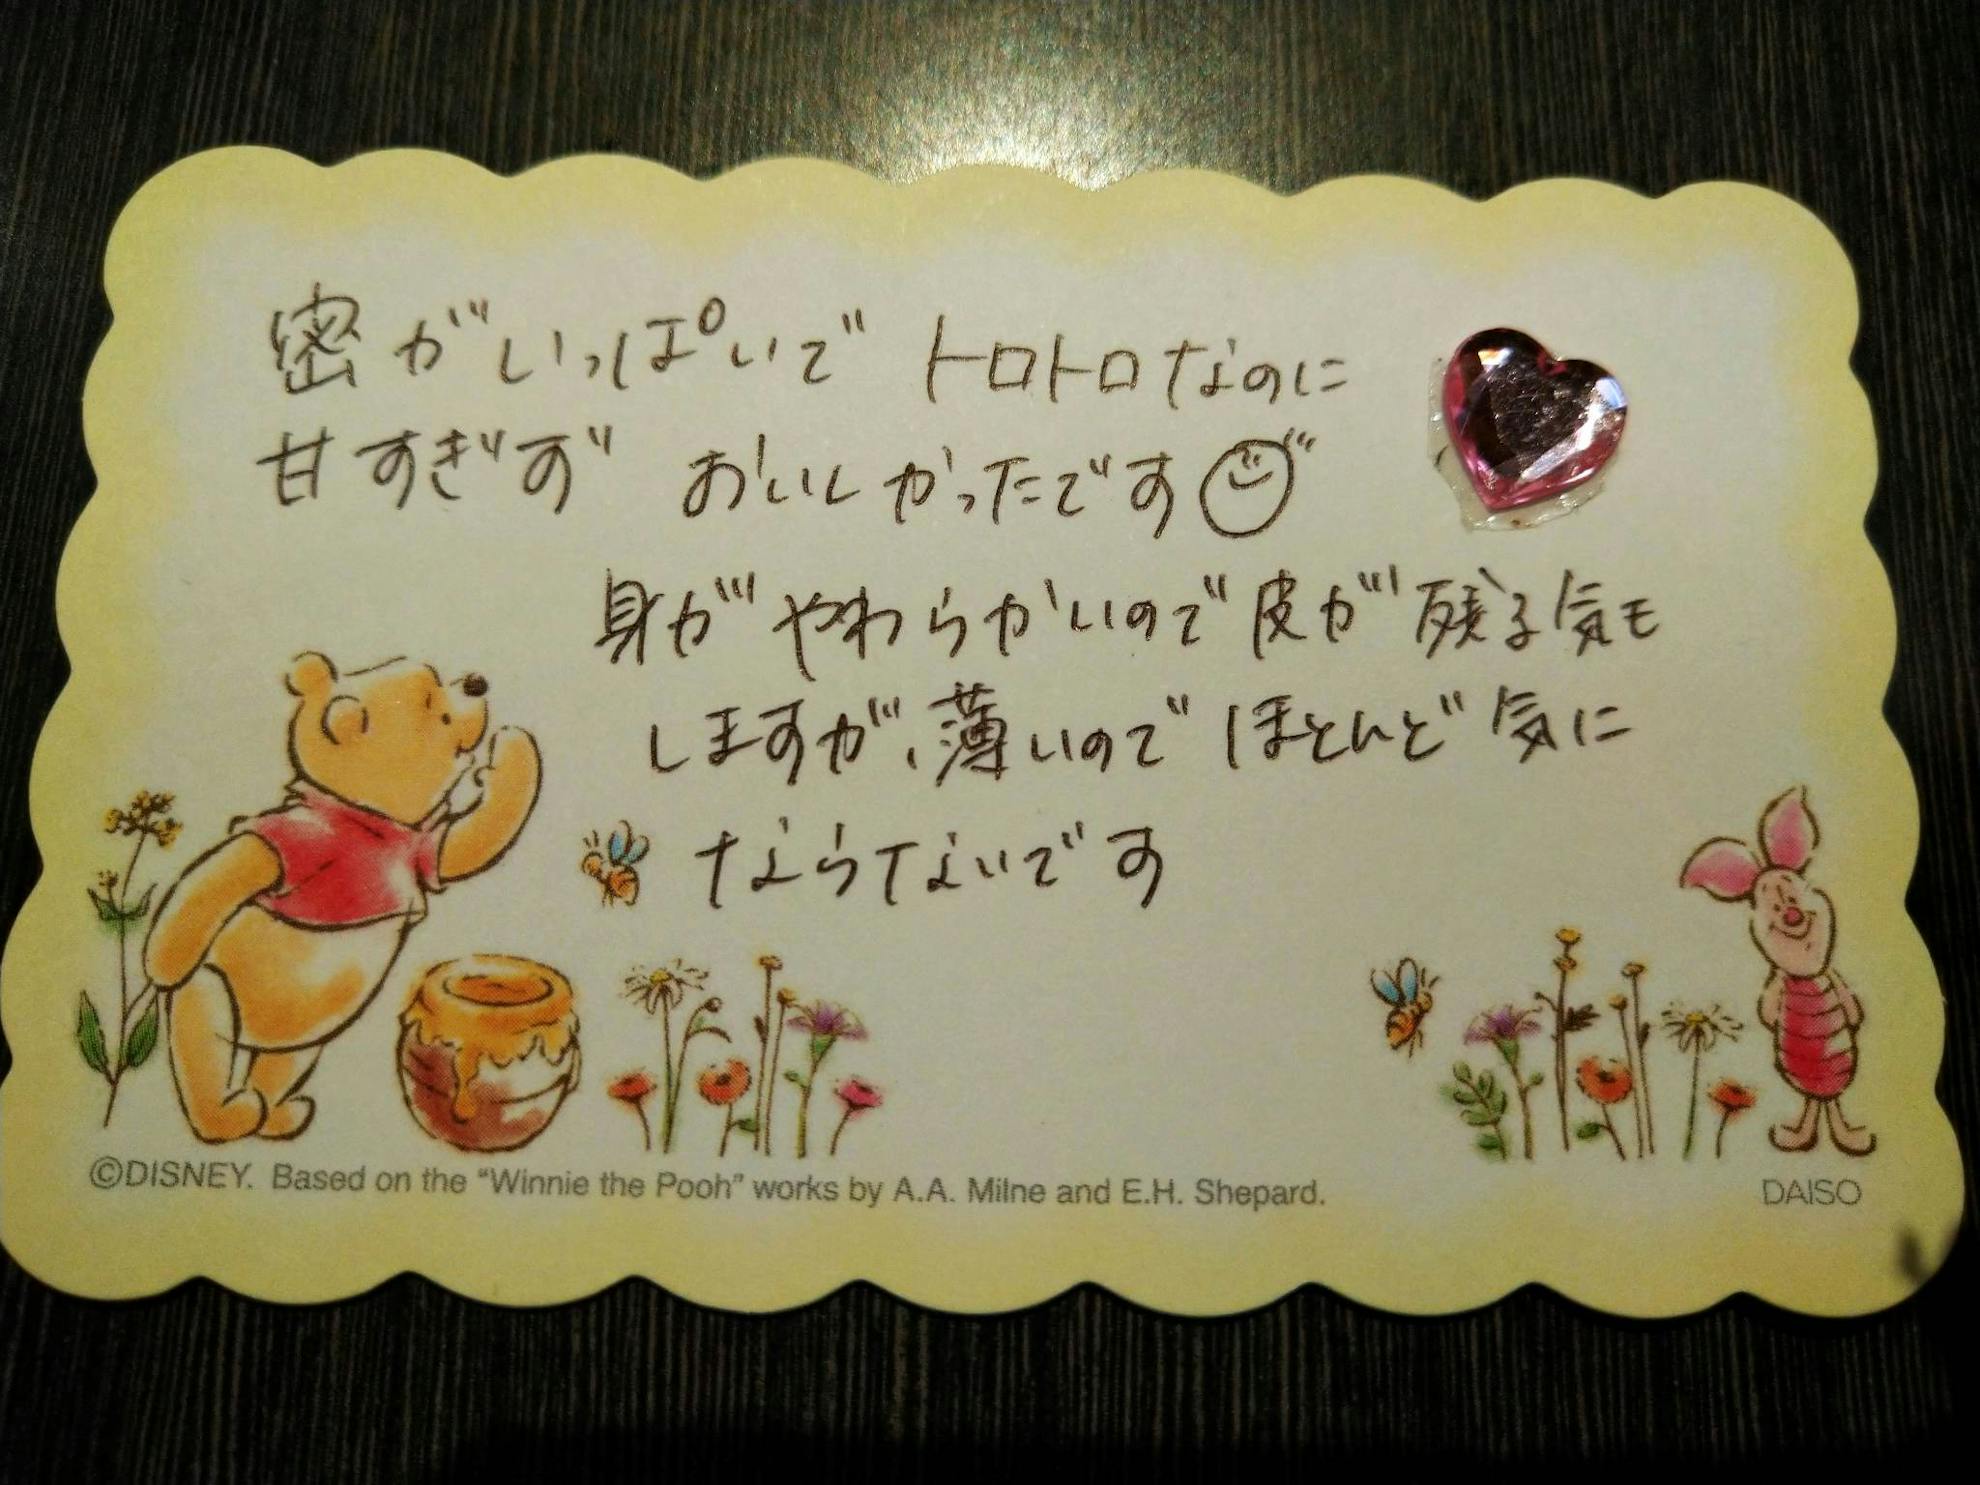 密がいっぱいで トロトロなのに
甘すぎず おいしかったです
身がやわらかいので皮が残る気も
しますが、薄いのでほとんど気に
ならないです
©DISNEY. Based on the “Winnie the Pooh” works by A.A. Milne and E.H. Shepard.
DAISO